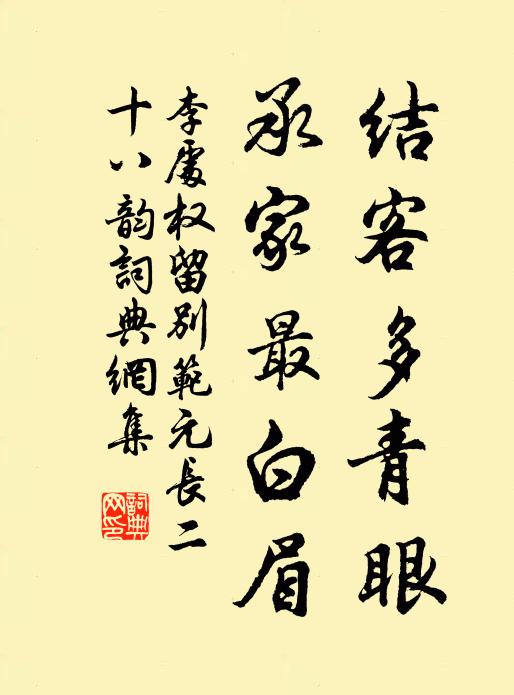 結客多青眼
承家最白眉
李處權留別範元長二
十八韵詞典網集
詞典
网印